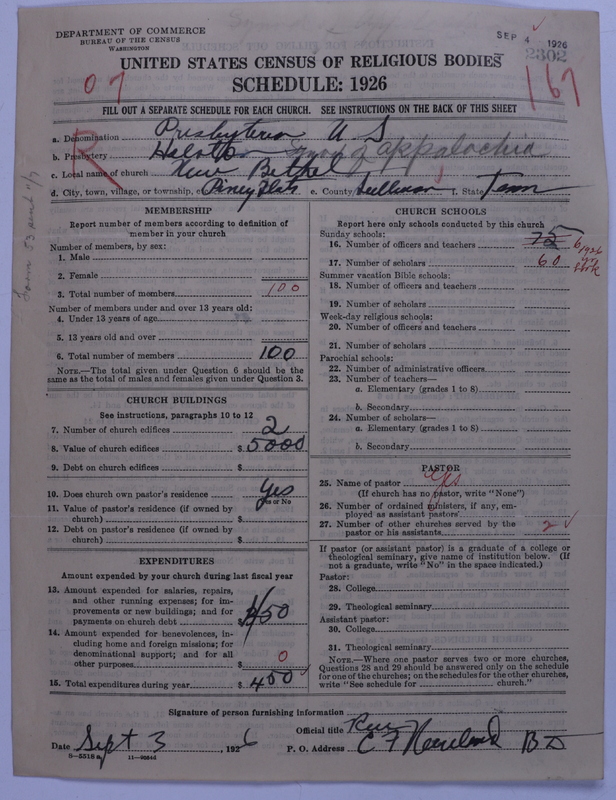 DEPARTMENT OF COMMERCE
BUREAU OF THE CENSUS
WASHINGTON
SEP 4 1926
2302
UNITED STATES CENSUS OF RELIGIOUS BODIES
SCHEDULE: 1926
07
167
FILL OUT A SEPARATE SCHEDULE FOR EACH CHURCH. SEE INSTRUCTIONS ON THE BACK OF THIS SHEET
R
a. Denomination Presbyterian U S
b. Presbytery Holston Synod of Appalachia
c. Local name of church New Bethel
d. City, town, village, or township, etc. Piney Flats e. County Sullivan f. State Tenn
MEMBERSHIP
Report number of members according to definition of member in your church
Number of members, by sex:
1. Male
2. Female
3. Total number of members 100
Number of members under and over 13 years old:
4. Under 13 years of age
5. 13 years old and over
6. Total number of members 100
NOTE.—The total given under Question 6 should be the same as the total of males and females given under Question 3.
CHURCH BUILDINGS
See instructions, paragraphs 10 to 12
7. Number of church edifices 2
8. Value of church edifices $ 5000
9. Debt on church edifices $
10. Does church own pastor's residence Yes
Yes or No
11. Value of pastor's residence (if owned by church) $
12. Debt on pastor's residence (if owned by church) $
EXPENDITURES
Amount expended by your church during last fiscal year
13. Amount expended for salaries, repairs, and other running expenses; for improvements or new buildings; and for payments on church debt $ 450
14. Amount expended for benevolences, including home and foreign missions; for denominational support; and for all other purposes $ 0
15. Total expenditures during year $ 450
CHURCH SCHOOLS
Report here only schools conducted by this church
Sunday schools:
16. Number of officers and teachers 75 6 1926
17. Number of scholars 60
Summer vacation Bible schools:
18. Number of officers and teachers
19. Number of scholars
Week-day religious schools:
20. Number of officers and teachers
21. Number of scholars
Parochial schools:
22. Number of administrative officers
23. Number of teachers—
a. Elementary (grades 1 to 8)
b. Secondary
24. Number of scholars—
a. Elementary (grades 1 to 8)
b. Secondary
PASTOR
25. Name of pastor yes
(If church has no pastor, write "None")
26. Number of ordained ministers, if any, employed as assistant pastors
27. Number of other churches served by the pastor or his assistants 2
If pastor (or assistant pastor) is a graduate of a college or theological seminary, give name of institution below. (If not a graduate, write "No" in the space indicated.)
Pastor:
28. College
29. Theological seminary
Assistant pastor:
30. College
31. Theological seminary
NOTE.—Where one pastor serves two or more churches, Questions 28 and 29 should be answered only on the schedule for one of the churches; on the schedules for the other churches, write "See schedule for church."
Signature of person furnishing information
Official title Rev
Date Sept 3, 1926 P. O. Address C F
8-5518 a 11-9684d